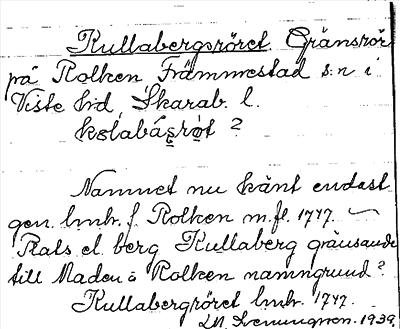 Kullabergsröret Gränsrör
på Rolken Främmestad s:n i
Viste hd, Skarab. l.
kølabásrøt ?
Namnet nu känt endast
gen. lmhr. f. Rolken m.fl. 1747.
Plats el. berg Kullaberg gränsande
till Maden å Rolken namngrund?
Kullabergröret lmhr. 1747.
1939.